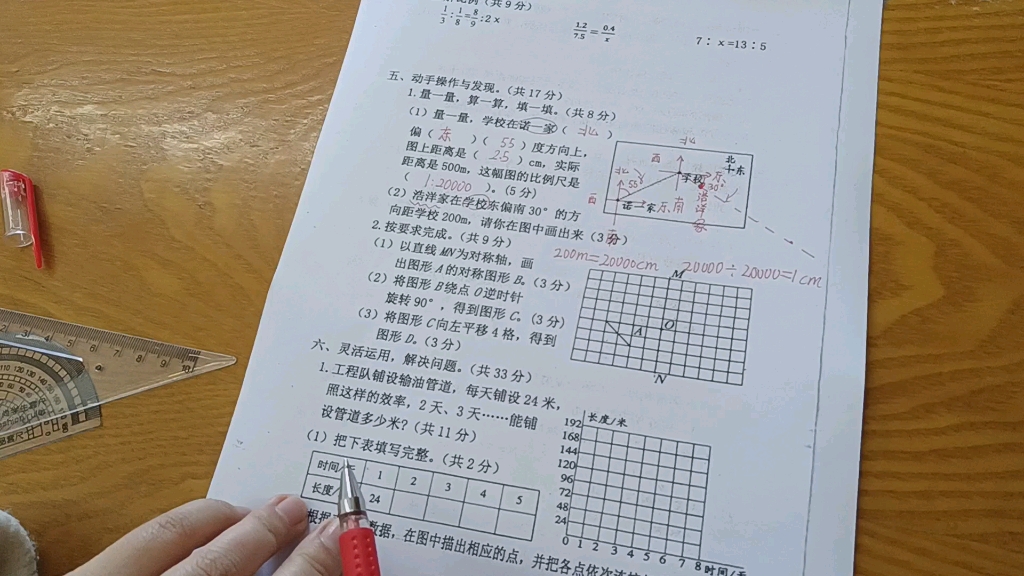 比例(共9分)
1/3:1/8=8/9:2x 1.2/7.5=0.4/x 7:x=13:5
五、动手操作与发现。(共17分)
1.量一量,算一算,填一填。(共8分)
(1)量一量,学校在诺一家(北)
偏(东)(55)度方向上,
图上距离是(2.5)cm,实际
距离是500m,这幅图的比例尺是
(1:20000)。(5分)
(2)浩洋家在学校东偏南30°的方
向距学校200m,请你在图中画出来(3分)
北
西
北
东
学校
东
30°
北
55°
浩洋家
西
诺一家
东
南
南
200m=20000cm 20000÷20000=1cm
2.按要求完成。(共9分)
(1)以直线MN为对称轴,画
出图形A的对称图形B。(3分)
(2)将图形B绕点O逆时针
旋转90°,得到图形C。(3分)
(3)将图形C向左平移4格,得到
图形D。(3分)
M
A
O
N
六、灵活运用,解决问题。(共33分)
1.工程队铺设输油管道,每天铺设24米,
照这样的效率,2天、3天……能铺
设管道多少米?(共11分)
(1)把下表填写完整。(共2分)
时间 1 2 3 4 5
长度 24
根据 数据,在图中描出相应的点,并把各点依次
长度/米
192
168
144
120
96
72
48
24
0 1 2 3 4 5 6 7 8 时间/天